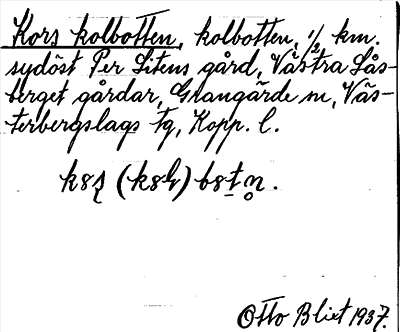 Kors kolbotten, kolbotten, 1/2 km.
sydöst Per Litens gård, Västra Lås-
berget gårdar, Grangärde sn, Väs-
terbergslags tg, Kopp. l.
Otto Blixt 1937.